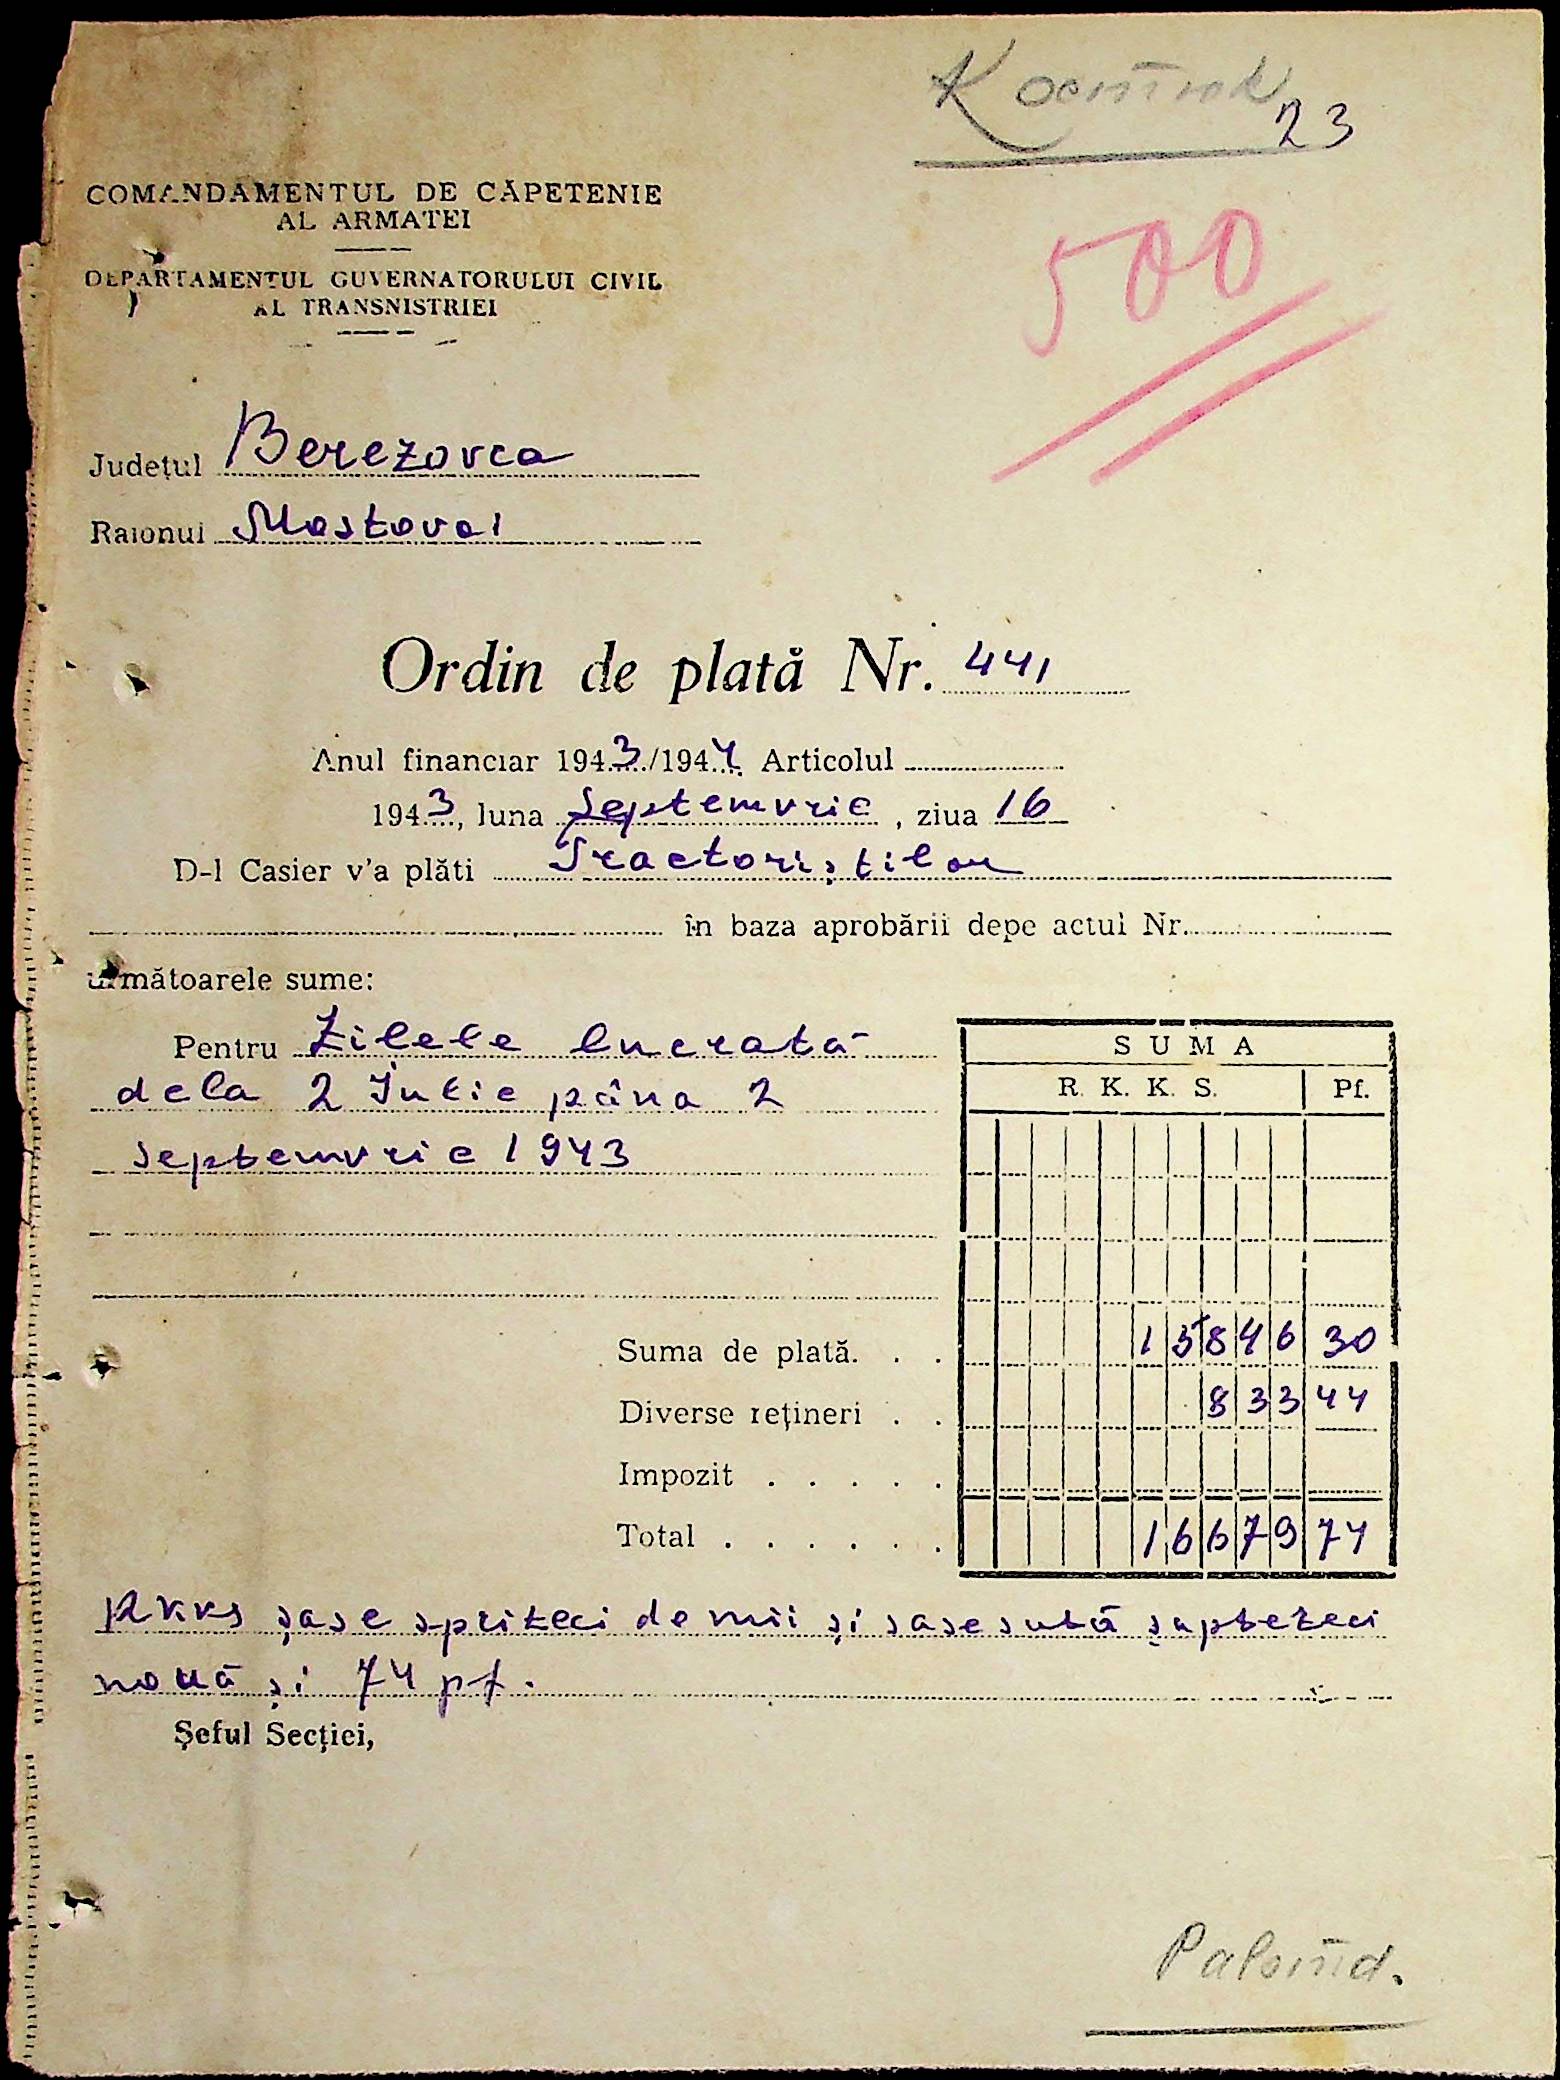 23
COMANDAMENTUL DE CĂPETENIE
AL ARMATEI
500
DEPARTAMENTUL GUVERNATORULUI CIVIL
AL TRANSNISTRIEI
Județul Berezovca
Raionul Mostovoi
Ordin de plată Nr. 441
Anul financiar 1943/1944 Articolul
1943, luna Septemvrie, ziua 16
D-l Casier v'a plăti Tractoriștilor
în baza aprobării depe actul Nr.
următoarele sume:
Pentru Zilele lucrată
dela 2 Iulie pâna 2
septemvrie 1943
SUMA
R. K. K. S. Pf.
Suma de plată. . . 15846 30
Diverse rețineri . . 833 44
Impozit . . . . .
Total . . . . . . 16679 74
RKKS șase sprizeci de mii și sasesută șaptezeci
nouă și 74 pf.
Șeful Secției,